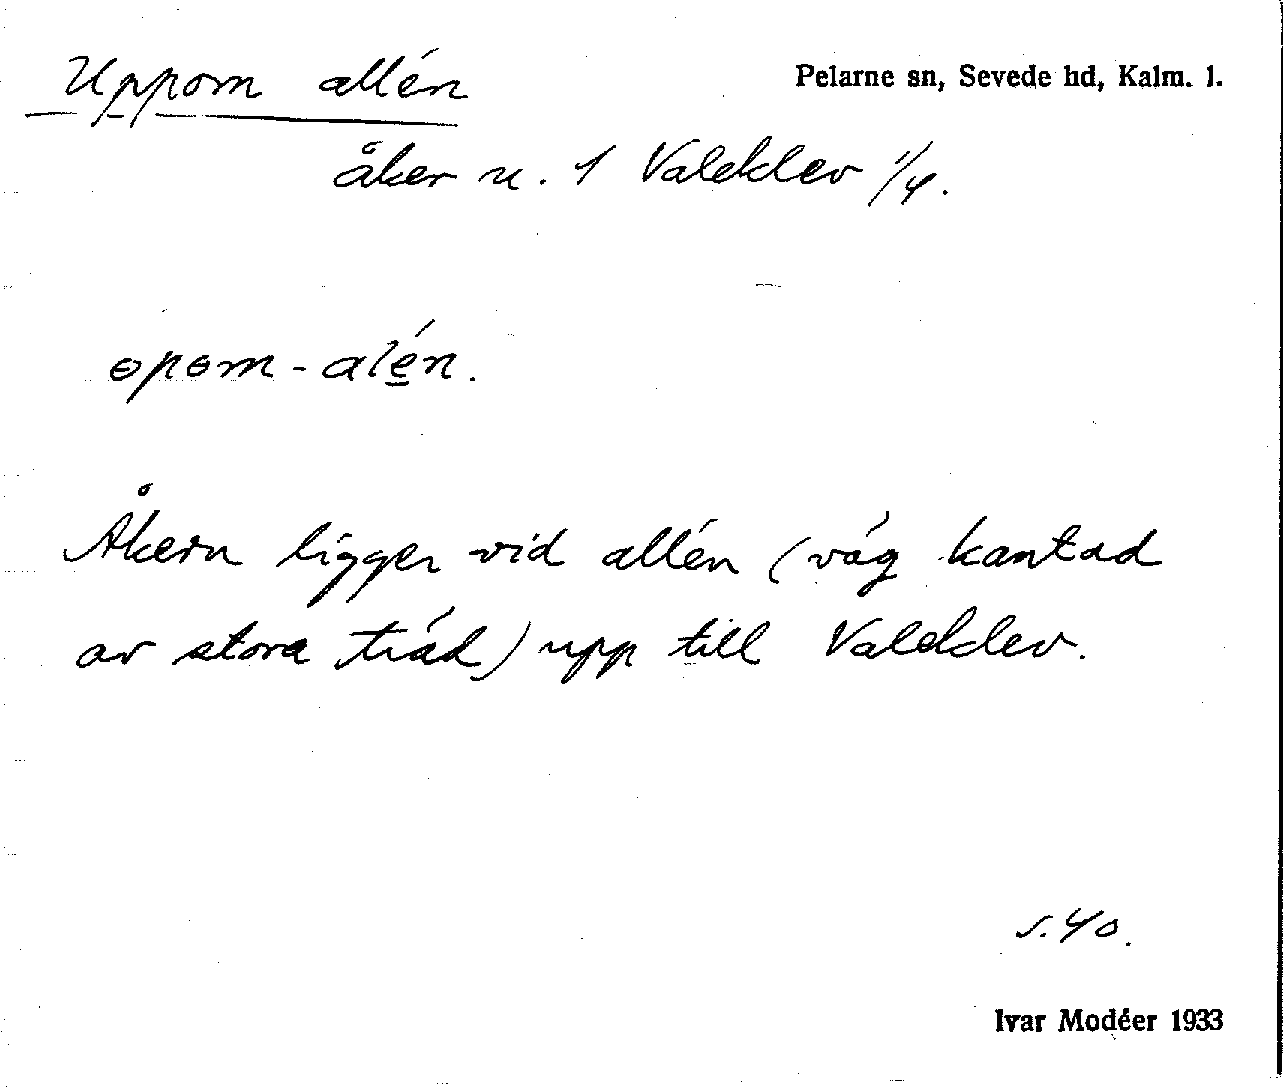 Uppom allén
Pelarne sn, Sevede hd, Kalm. l.
åker u. 1 Valeklev 1/4.
ɵpɵm-alén.
Åkern ligger vid allén (väg kantad
av stora träd) upp till Valeklev.
s. 40.
Ivar Modéer 1933